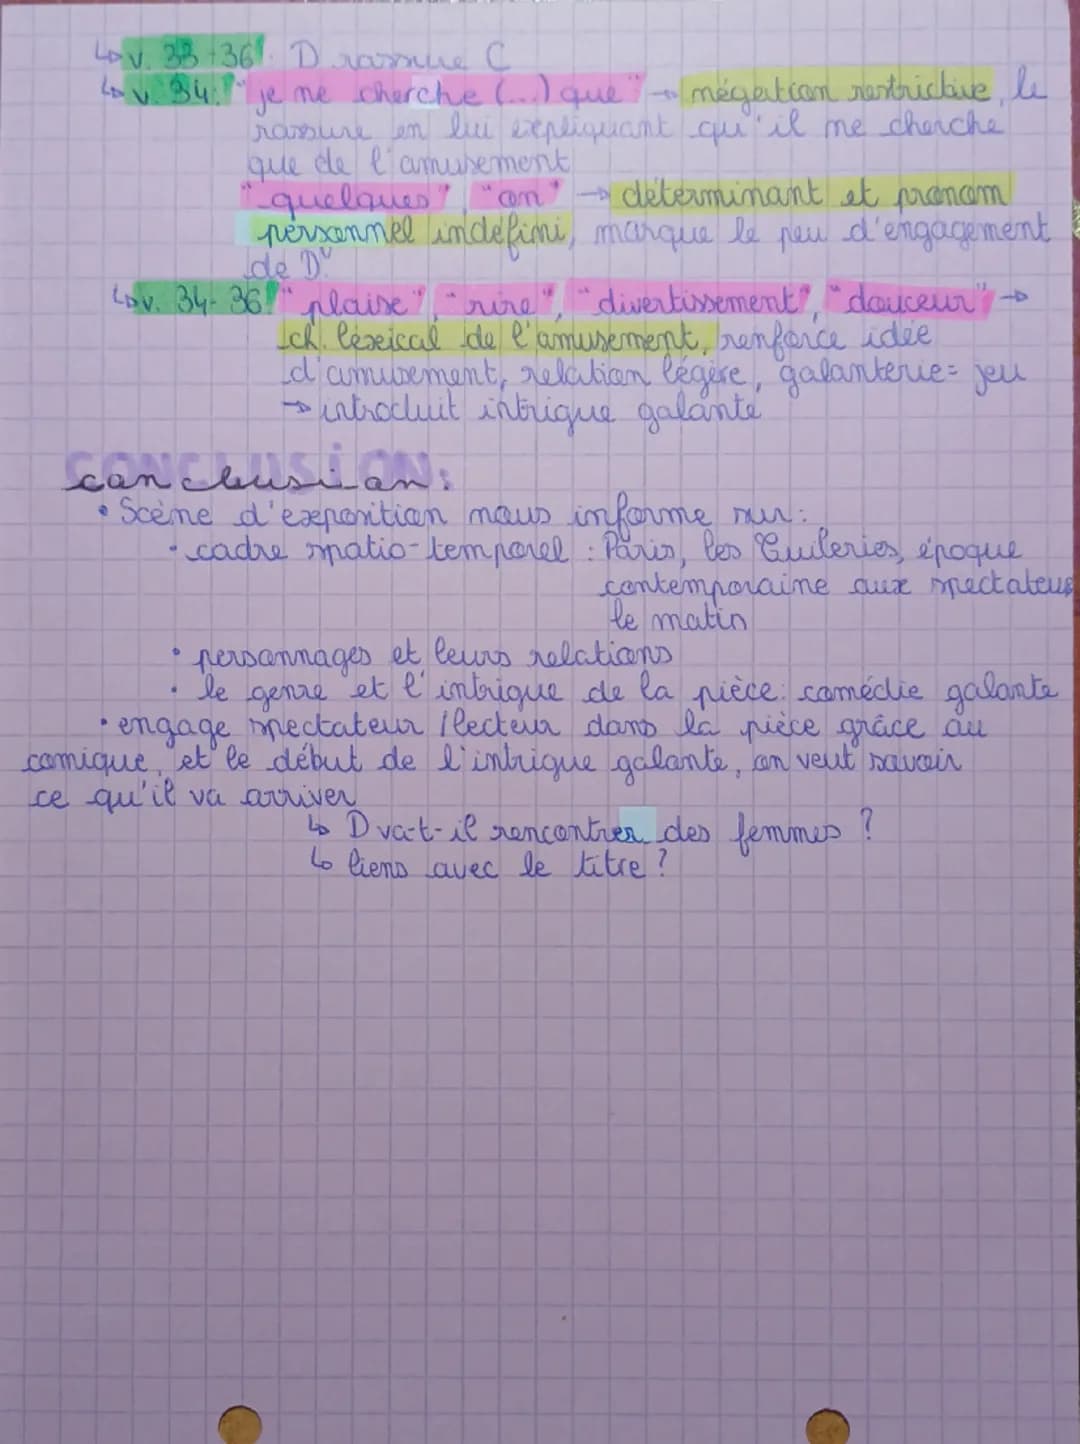 ↳ v. 33-36: D rassure C
↳ v. 34: "je ne cherche (...) que" → négation restrictive, le
rassure en lui expliquant qu'il ne cherche
que de l'amusement
"quelques", "on" → déterminant et pronom
personnel indéfini, marque le peu d'engagement
de D.
↳ v. 34-36: "plaise", "rire", "divertissement", "douceur" →
ch. lexical de l'amusement, renforce idée
d'amusement, relation légère, galanterie = jeu
→ introduit intrigue galante
CONCLUSION:
conclusion:
• Scène d'exposition nous informe sur:
• cadre spatio-temporel : Paris, les Tuileries, époque
contemporaine aux spectateurs
le matin
• personnages et leurs relations
• le genre et l'intrigue de la pièce: comédie galante
• engage spectateur / lecteur dans la pièce grâce au
comique, et le début de l'intrigue galante, on veut savoir
ce qu'il va arriver
↳ D va-t-il rencontrer des femmes ?
↳ liens avec le titre ?